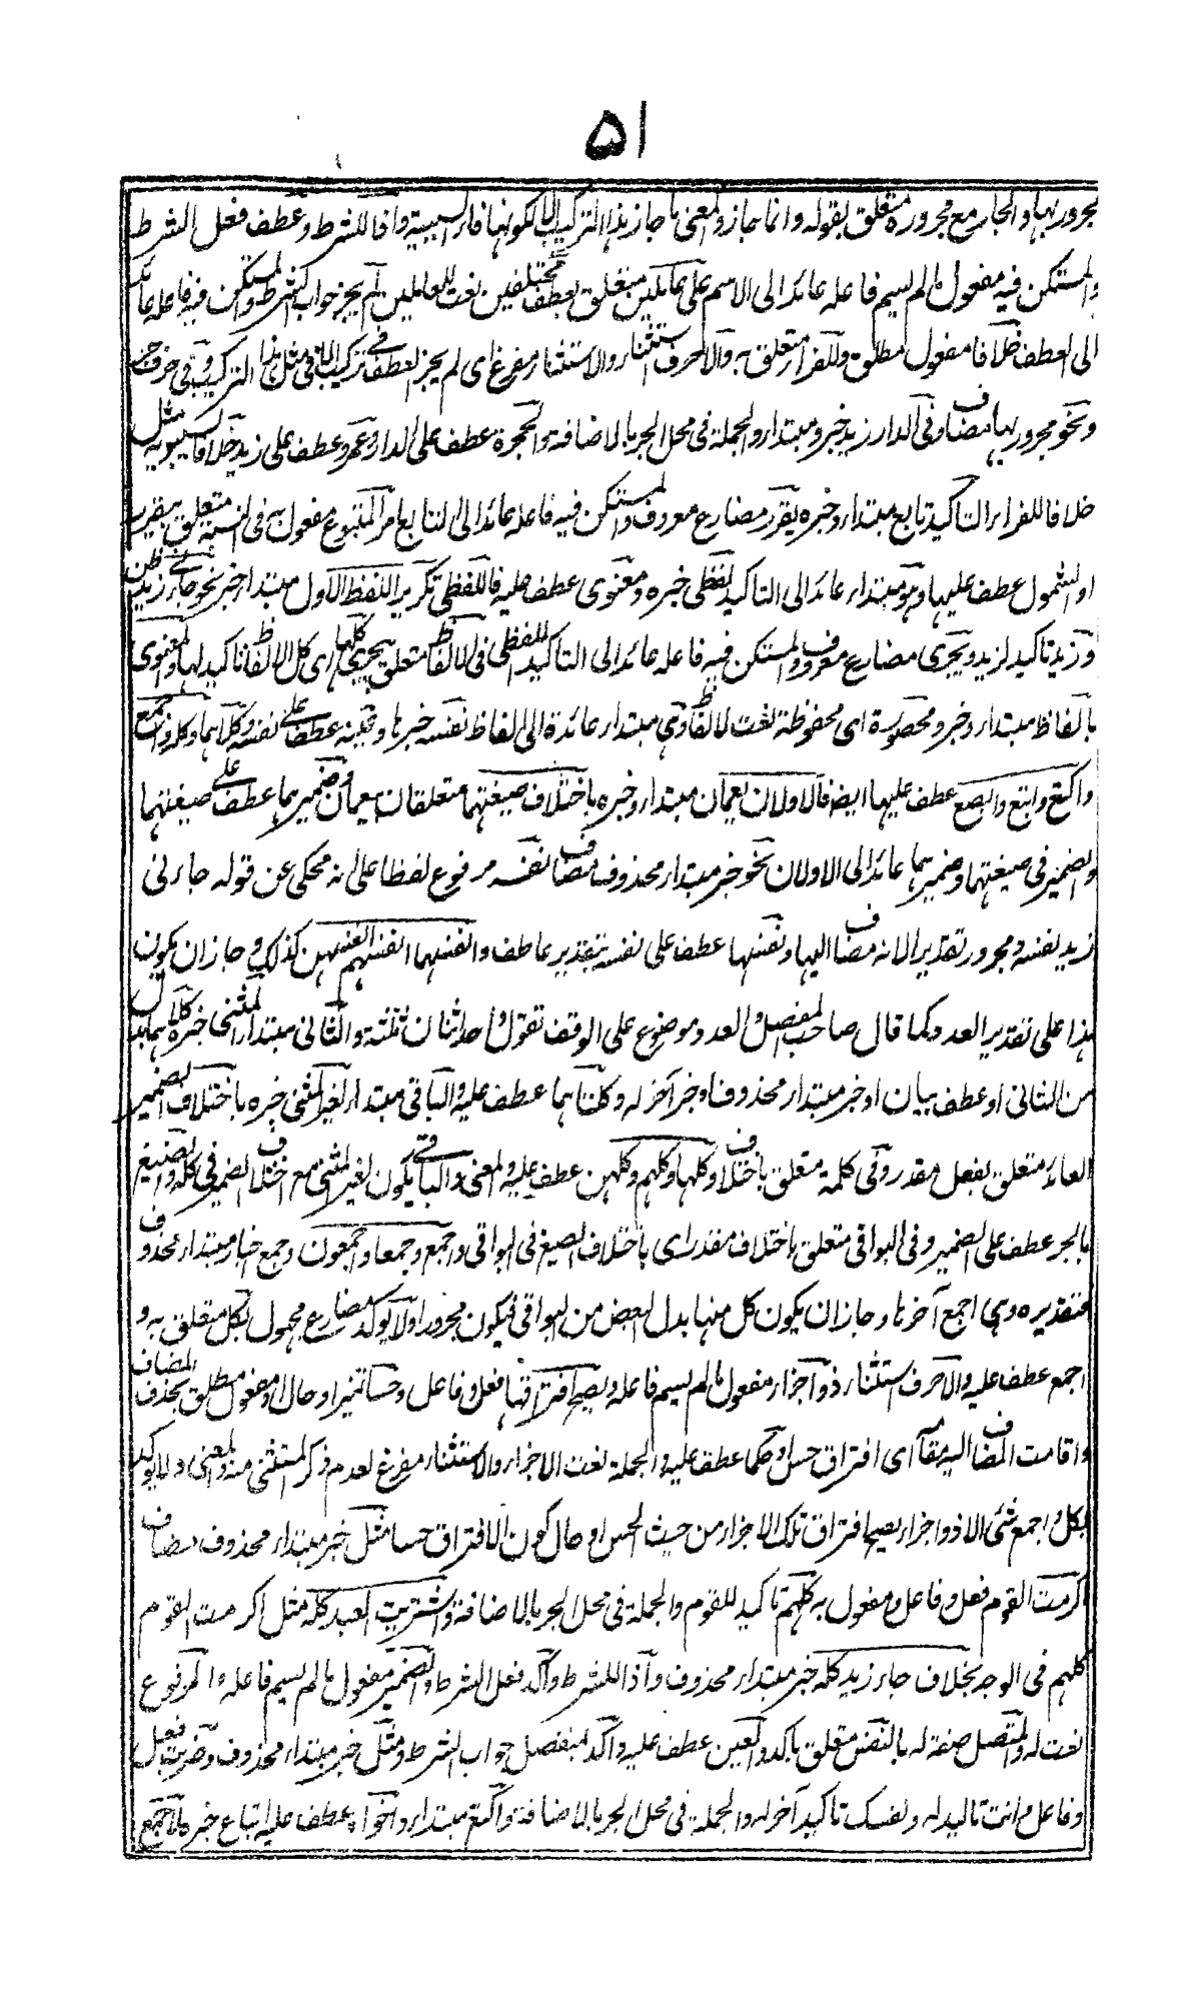 ۵۱
مجرور بہا والجار مع مجروره متعلق بقوله وانما جاز والمعنى ما جاز هذا التركيب الا لكونها فاء السببية واذا للشرط وعطف فعل الشرط
والمستكن فيه مفعول مالم يسم فاعله عائد الى الاسم على عاملين متعلق بعطف مختلفين نعت للعاملين لم يجز جواب الشرط والمستكن فيه فاعله عائد
الى العطف خلافا مفعول مطلق وللفراء متعلق به والا حرف استثناء والاستثناء مفرغ اى لم يجز العطف فى تركيب الا فى مثل هذا التركيب وفى حرف جر
ونحو مجرور بها مضاف وفى الدار زيد خبر ومبتدا والجملة فى محل الجر بالاضافة والحجرة عطف على الدار وعمرو عطف على زيد خلافا لسيبويه مثل
خلافا للفراء التاكيد تابع مبتدا وخبره يقرر مضارع معروف والمستكن فيه فاعله عائد الى التابع امر المتبوع مفعول به فى النسبة متعلق بيقرر
او الشمول عطف عليها وهو مبتداء عائد الى التاكيد لفظى خبره ومعنوى عطف عليه فاللفظى تكرير اللفظ الاول مبتدا خبر نحو جاءنى زيد زيد
وزيد تاكيد لزيد ويجرى مضارع معروف والمستكن فيه فاعله عائد الى التاكيد اللفظى فى الالفاظ متعلق بيجرى كلها اى كل الالفاظ تاكيد لها والمعنوى
بالفاظ مبتدا وخبر ومحصورة اى محفوظة نعت لالفاظ وهى مبتدا عائدة الى الفاظ نفسه خبرها وعينه عطف على نفسه وكلاهما وكله واجمع
واكتع وابتع وابصع عطف عليها ايضا فالاولان يعمان مبتدا وخبره باختلاف صيغتهما متعلقان بيعمان وضميرهما عطف على صيغتهما
والضمير فى صيغتهما وضميرهما عائد الى الاولان نحو خبر مبتدا محذوف مضاف نفسه مرفوع لفظا على انه محكى عن قوله جاءنى
زيد نفسه ومجرور تقديرا لانه مضاف اليها ونفسها عطف على نفسه بتقدير عاطف وانفسهما انفسهم انفسهن كذلك وجاز ان يكون
هذا على تقدير العدد كما قال صاحب المفصل والعدد موضوع على الوقف تقول واحد اثنان ثلثه والثانى مبتدا للمثنى خبره كلاهما بدل
من الثانى او عطف بيان او خبر مبتدا محذوف او خبر آخر له وكلتاهما عطف عليه والباقى مبتدا لغير المثنى خبره باختلاف الضمير
العائد متعلق بفعل مقدر وفى كلمة متعلق باختلاف وكلها وكلهم وكلهن عطف عليه والمعنى والباقى يكون لغير المثنى مع اختلاف الضمير فى كله والصيغ
بالجر عطف على الضمير وفى البواقى متعلق باختلاف مقدر اى باختلاف الصيغ فى البواقى واجمع وجمعا واجمعون وجمع خبار مبتدا محذوف
فتقديره وهى اجمع آخرها وجاز ان يكون كل منها بدل البعض من البواقى فيكون مجرورا ولا يوكد مضارع مجهول بكل متعلق به و
اجمع عطف عليه والا حرف استثناء ذو اجزاء مفعول مالم يسم فاعله ويصح افتراقها فعل وفاعل وحسا تميز او حال او مفعول مطلق بحذف المضاف
واقامت المضاف اليه مقامه اى افتراق حس او حكما عطف عليه والجملة نعت الاجزاء والاستثناء مفرغ لعدم ذكر المستثنى منه والمعنى ولا يوكد
بكل واجمع شئ الا ذو اجزاء يصح افتراق تلك الاجزاء من حيث الحس او حال كون الافتراق حسا مثل خبر مبتداء محذوف مضاف
اكرمت القوم فعل وفاعل ومفعول به كلهم تاكيد للقوم والجملة فى محل الجر بالاضافة واشتريت العبد كله مثل اكرمت القوم
كلهم فى الوجه بخلاف جاء زيد كله خبر مبتداء محذوف واذا للشرط واكد فعل الشرط والضمير مفعول مالم يسم فاعله والمرفوع
نعت له والمتصل صفة له بالنفس متعلق باكد والعين عطف عليه واكد لمنفصل جواب الشرط ومثل خبر مبتداء محذوف وضربت فعل
وفاعل وانت تاكيد له ونفسك تاكيد آخر له والجملة فى محل الجر بالاضافة واكتع مبتداء واخواه عطف عليه اتباع خبره لاجمع